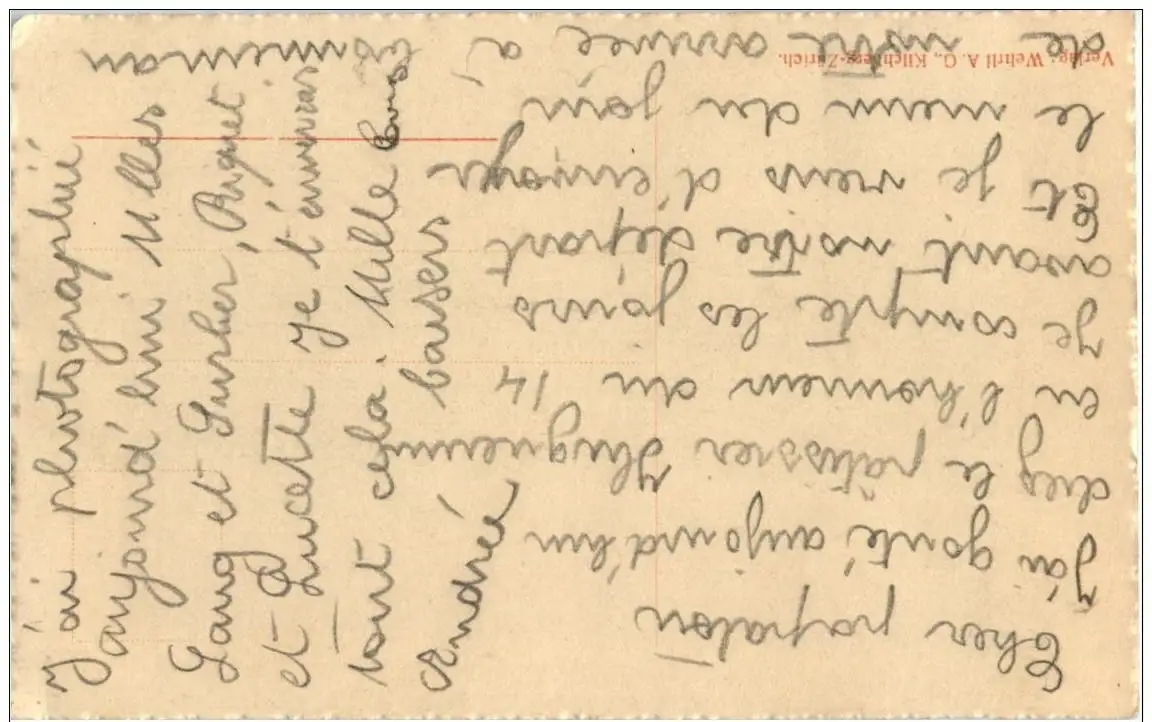 Cher papaton
J'ai gouté aujourd'hui
chez le pâtissier Huguenin
en l'honneur du 14
Je compte les jours
avant notre départ
Et je viens d'envoyer
le menu du jour
de notre arrivée à
J'ai photographié
aujourd'hui Mlles
Lang et Surher, Riquet
et Lucette je t'enverrais
tout cela. Mille bons
baisers
Andrée
Verlag: Wehrli A. G., Kilchberg-Zürich.